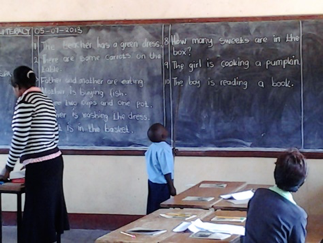 LITERACY 05-07-2013
The teacher has a green dress.
There are some carrots on the
table
Father and mother are eating
is buying fish.
two cups and one pot.
is washing the dress.
is in the basket
8. How many sweets are in the
box?
The girl is cooking a pumpkin.
The boy is reading a book.